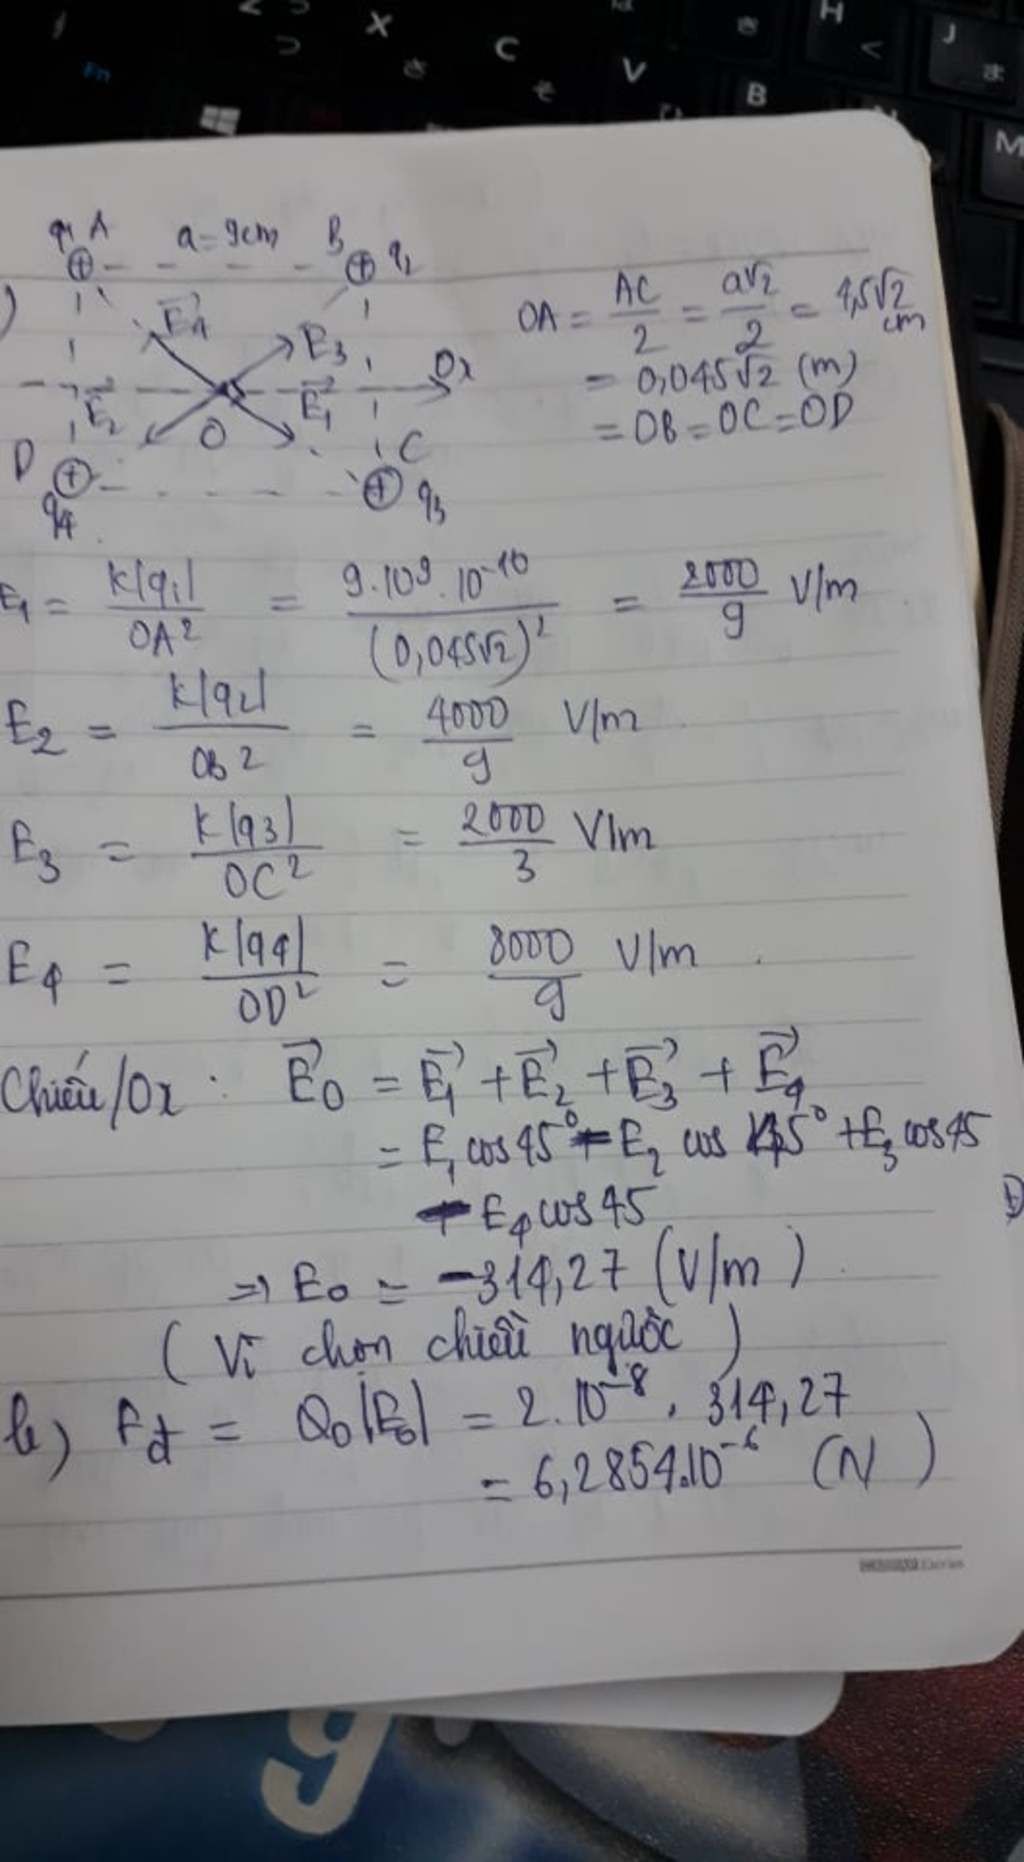 q1 A a = 9cm B q2
E4 E3 Ox
E2 O E1
D C
q4 q3
OA = AC/2 = a√2/2 = 4,5√2 cm
= 0,045√2 (m)
= OB = OC = OD
E1 = k|q1|/OA² = 9.10⁹.10⁻¹⁰/(0,045√2)² = 2000/9 V/m
E2 = k|q2|/OB² = 4000/9 V/m
E3 = k|q3|/OC² = 2000/3 V/m
E4 = k|q4|/OD² = 8000/9 V/m
Chiếu/Ox : E0 = E1 + E2 + E3 + E4
= E1 cos 45° - E2 cos 45° + E3 cos 45
- E4 cos 45
=> E0 = -314,27 (V/m)
(Vì chọn chiều ngược)
b) Fđ = Q0|E0| = 2.10⁻⁸ . 314,27
= 6,2854.10⁻⁶ (N)
X C V B H J M
Fn
g